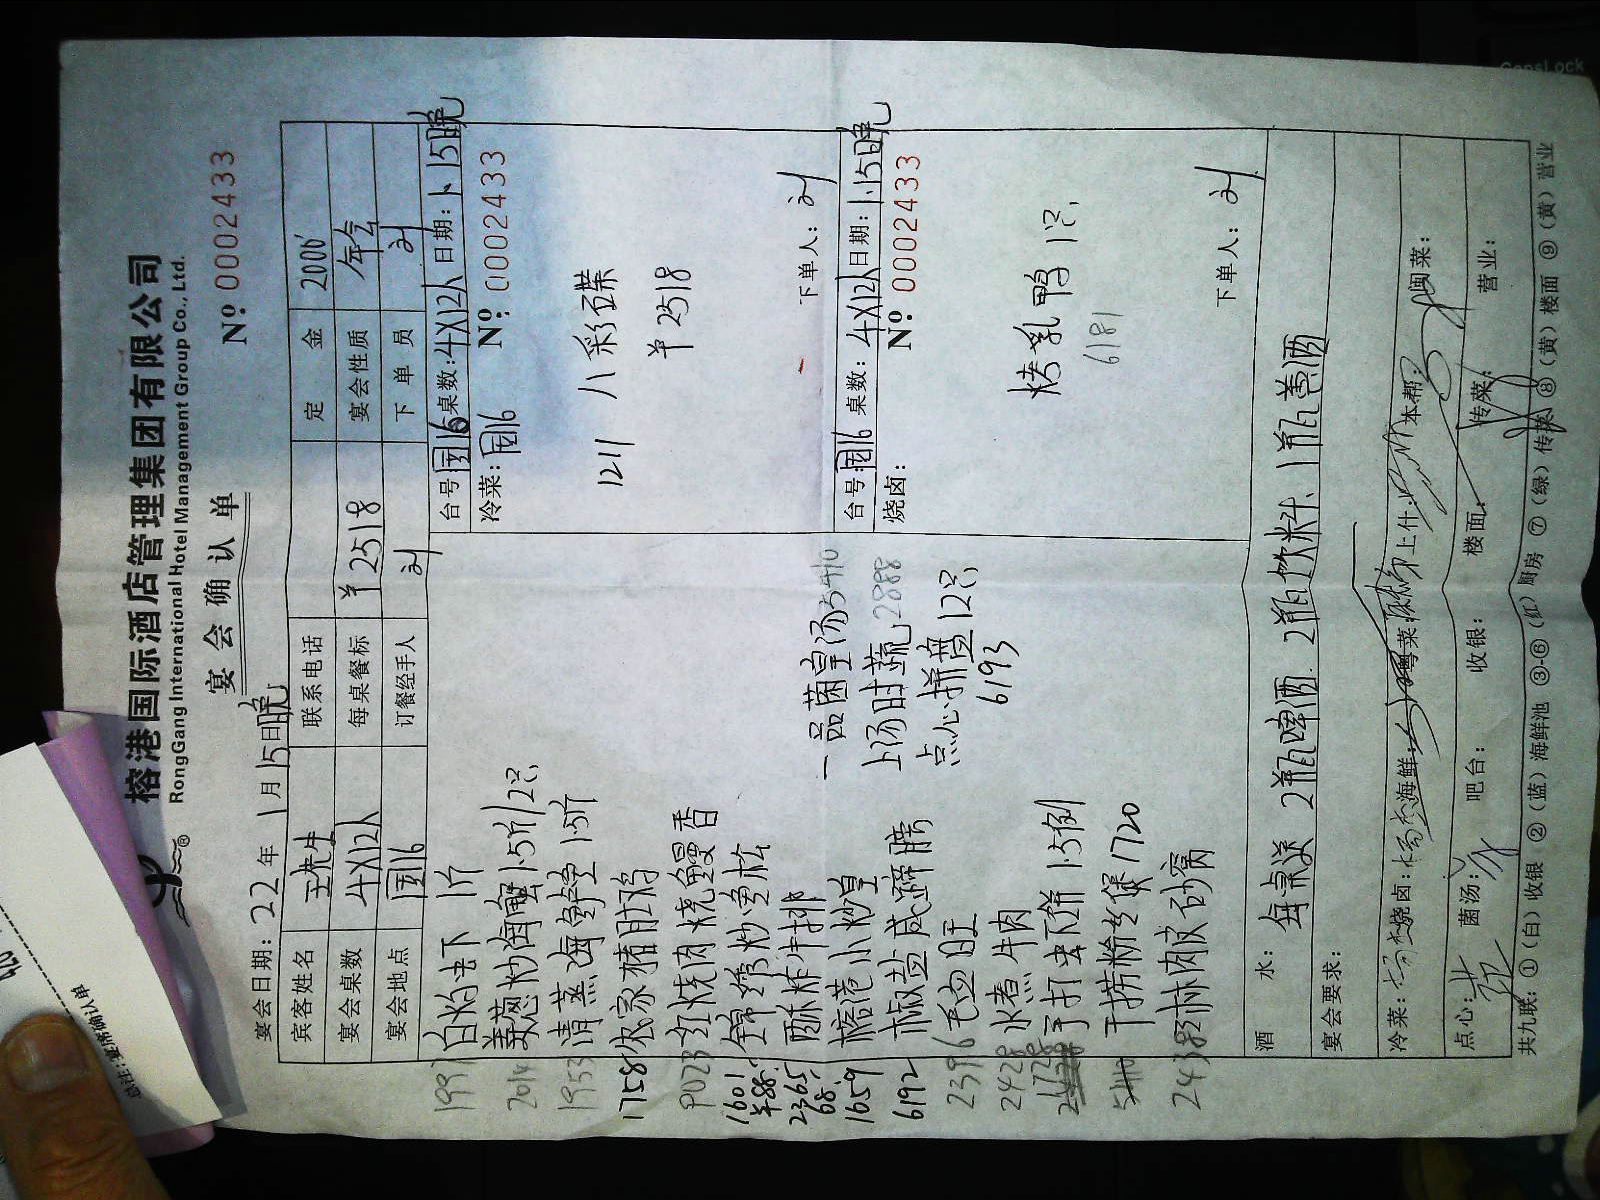 榕港国际酒店管理集团有限公司
RongGang International Hotel Management Group Co., Ltd.
宴会确认单
№ 0002433
宴会日期：22年1月15日晚
宾客姓名 王先生 联系电话 定金 2000
宴会桌数 4X12人 每桌餐标 ¥2518 宴会性质 年会
宴会地点 园16 订餐经手人 刘 下单员 刘
白灼中下 1斤
姜葱炒海蟹1.5斤/2只
1953 清蒸海鲈鱼 1.5斤
1758 农家猪肚鸡
9023 红烧肉烧鳗香
1601 锦绣炒鱼松
¥88
2365 酥炸牛排
68
1659 榕港小炒皇
6192 椒盐咸蹄膀
2396 毛血旺
2428 水煮牛肉
手打虫下饼 1.5例
干捞粉丝煲1720
2438 肉皮砂窝
一品菌皇汤5410
上汤时蔬 2888
点心拼盘12只
6193
台号：园16 桌数：4X12人 日期：1.15日晚
冷菜：园16 №: 0002433
1211 八彩碟
¥2518
下单人：刘
台号：园16 桌数：4X12人 日期：1.15日晚
烧卤： № 0002433
烤乳鸭1只
6181
下单人：刘
酒水： 每桌送 2瓶啤酒. 2瓶饮料. 1瓶善酒
宴会要求：
冷菜： 烧卤： 海鲜： 粤菜： 上什： 本帮： 闽菜：
点心： 菌汤： 吧台： 收银： 楼面： 传菜： 营业：
共九联：①（白）收银 ②（蓝）海鲜池 ③-⑥（红）厨房 ⑦（绿）传菜 ⑧（黄）楼面 ⑨（黄）营业
备注：宴席确认单
CapsLock